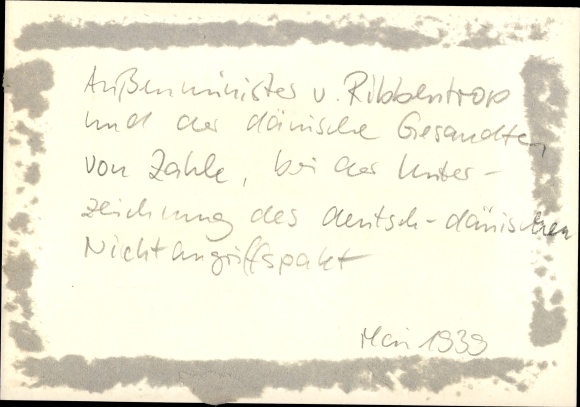 Außenminister v. Ribbentrop
und der dänische Gesandten,
von Zahle, bei der Unter-
zeichnung des deutsch-dänischen
Nichtangriffspakt
Mai 1939